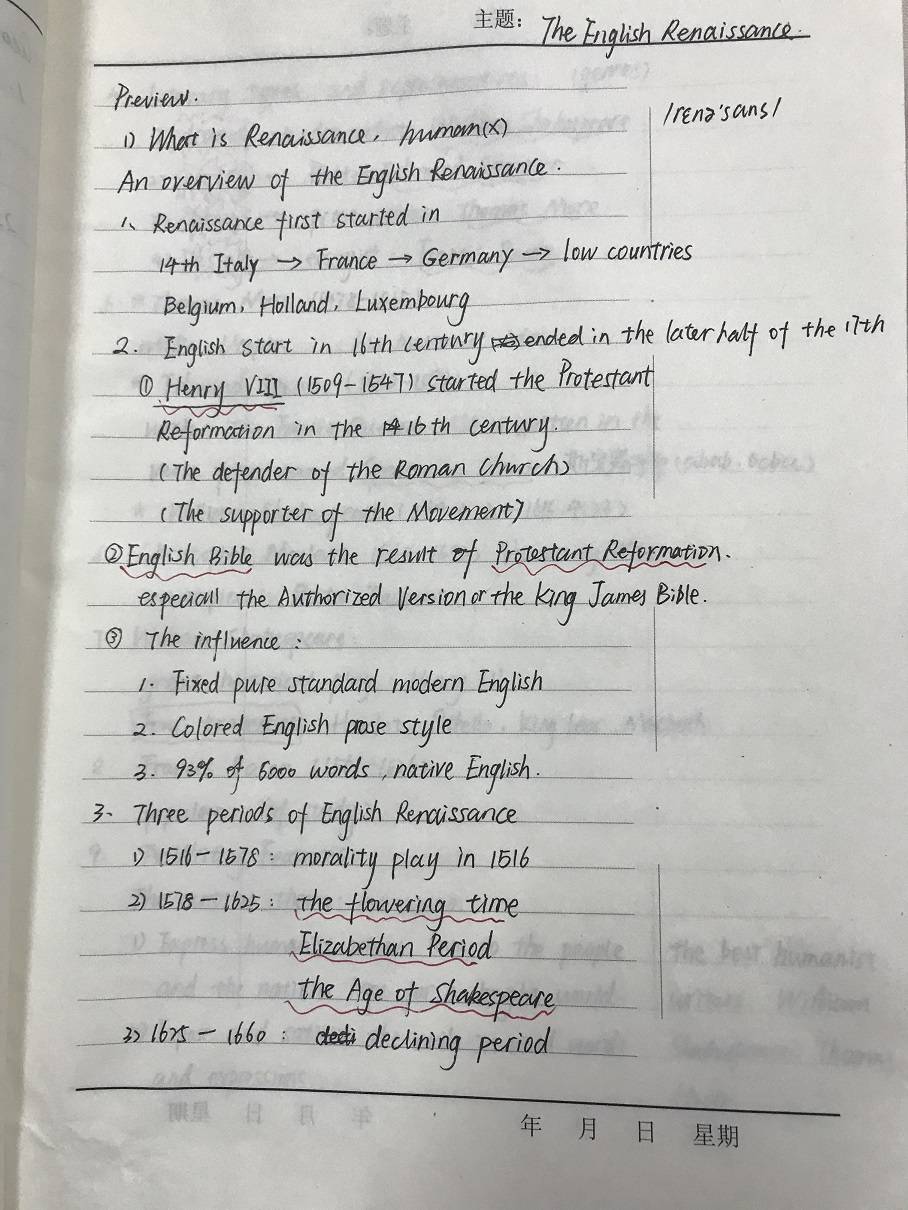 主题: The English Renaissance.
Preview.
/renə'sans/
1) What is Renaissance, human(x)
An overview of the English Renaissance.
1、Renaissance first started in
14th Italy → France → Germany → low countries
Belgium, Holland, Luxembourg
2. English start in 16th century ended in the later half of the 17th
① Henry VIII (1509-1547) started the Protestant
Reformation in the 16th century.
(The defender of the Roman Church)
(The supporter of the Movement)
② English Bible was the result of Protestant Reformation.
especiall the Authorized Version or the King James Bible.
③ The influence:
1. Fixed pure standard modern English
2. Colored English prose style
3. 93% of 6000 words, native English.
3. Three periods of English Renaissance
1) 1516-1578: morality play in 1516
2) 1578-1625: the flowering time
Elizabethan Period
the Age of Shakespeare
3) 1625-1660: declining period
年 月 日 星期